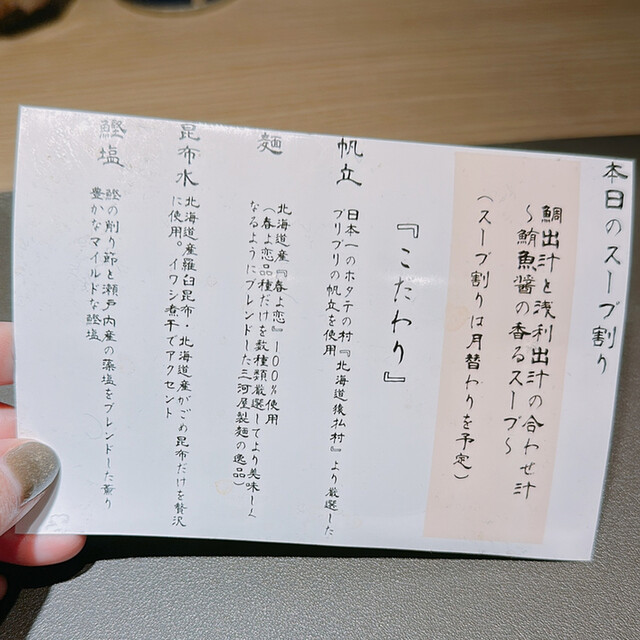 本日のスープ割り
鯛出汁と浅利出汁の合わせ汁
～鮪魚醤の香るスープ～
（スープ割りは月替わりを予定）
『こだわり』
帆立
日本一のホタテの村『北海道猿払村』より厳選した
プリプリの帆立を使用
麺
北海道産『春よ恋』100%使用
（春よ恋品種だけを数種類厳選してより美味しく
なるようにブレンドした三河屋製麺の逸品）
昆布水
北海道産羅臼昆布・北海道産がごめ昆布だけを贅沢
に使用。イワシ煮干でアクセント
鰹塩
鰹の削り節と瀬戸内産の藻塩をブレンドした薫り
豊かなマイルドな鰹塩